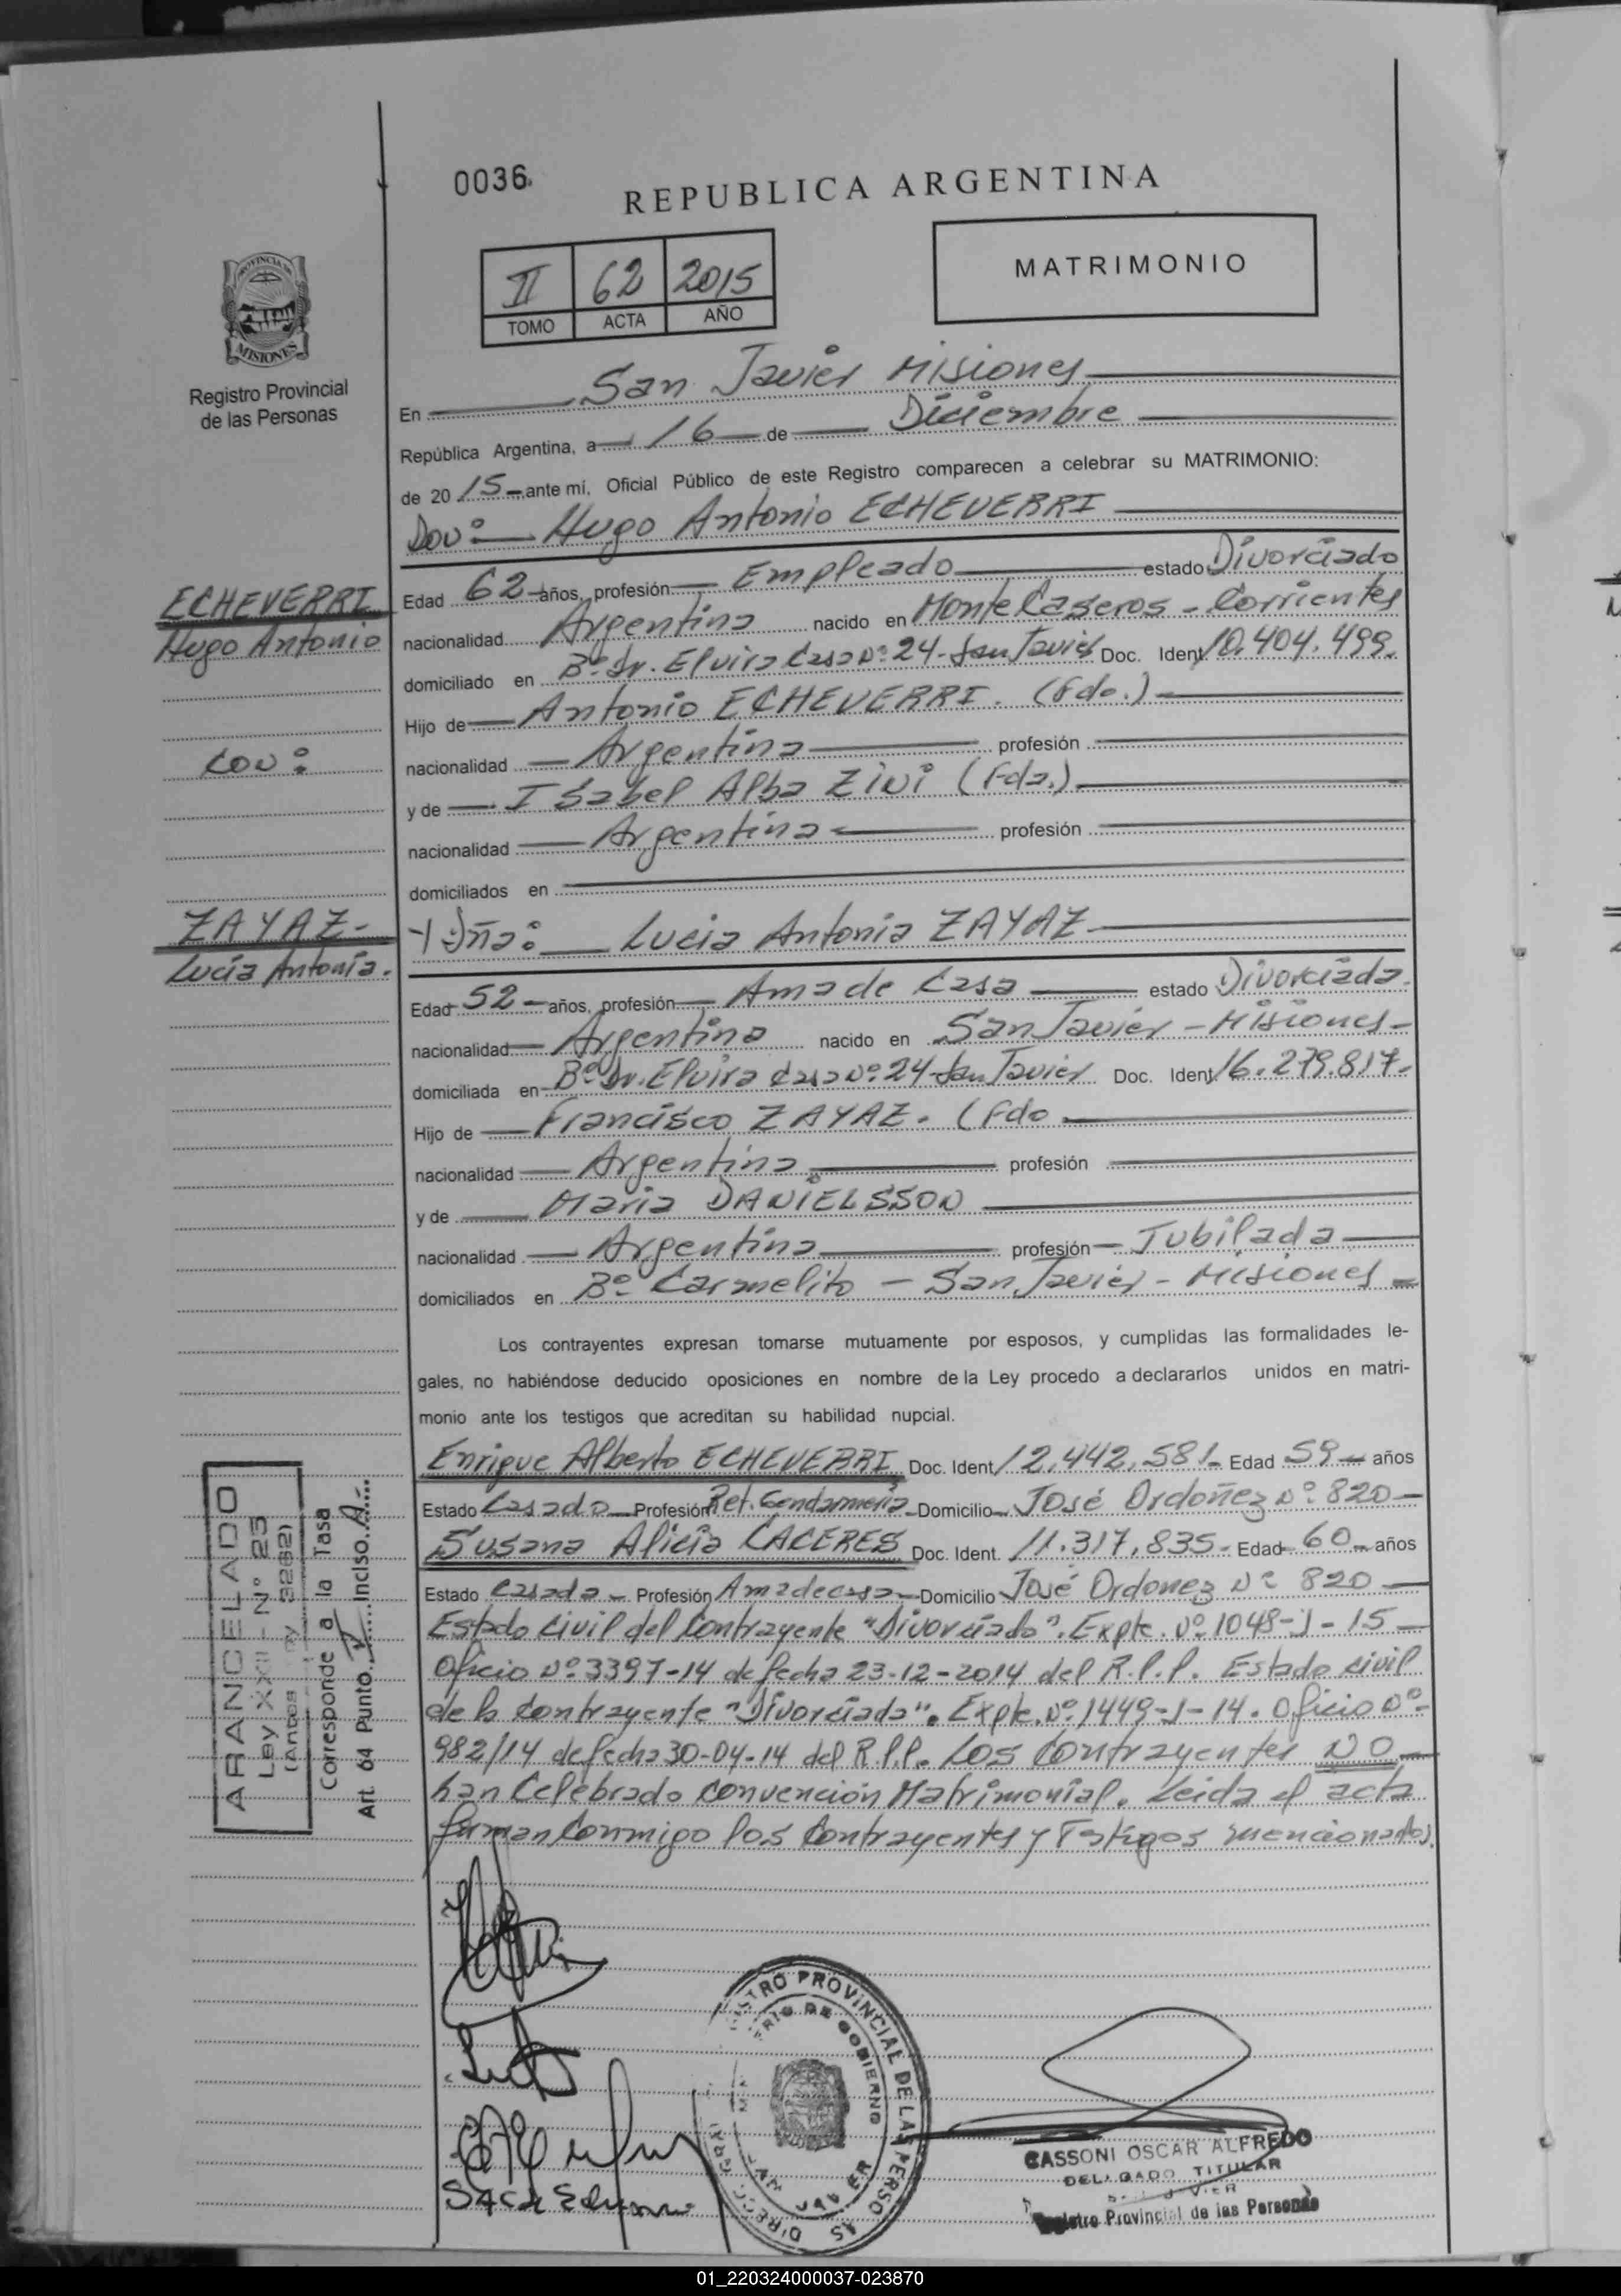 0036
REPUBLICA ARGENTINA
II 62 2015
TOMO ACTA AÑO
MATRIMONIO
PROVINCIA DE
MISIONES
Registro Provincial
de las Personas
En San Javier Misiones
República Argentina, a 16 de Diciembre
de 2015 ante mí, Oficial Público de este Registro comparecen a celebrar su MATRIMONIO:
Don: Hugo Antonio ECHEVERRI
ECHEVERRI
Hugo Antonio
Edad 62 años, profesión Empleado estado Divorciado
nacionalidad Argentina nacido en Monte Caseros - Corrientes
domiciliado en Bº Dr. Elvira Casa Nº 24 - San Javier Doc. Ident. 10.404.499.
Hijo de Antonio ECHEVERRI. (Fdo.)
con:
nacionalidad Argentina profesión
y de Isabel Alba ZINI (Fda.)
nacionalidad Argentina profesión
domiciliados en
ZAYAZ-
Lucía Antonia.
Y Dña: Lucia Antonia ZAYAZ
Edad 52 años, profesión Ama de Casa estado Divorciada.
nacionalidad Argentina nacido en San Javier - Misiones -
domiciliada en Bº Dr. Elvira Casa Nº 24 - San Javier Doc. Ident. 16.279.817-
Hijo de Francisco ZAYAZ. (Fdo
nacionalidad Argentina profesión
y de Maria DANIELSSON
nacionalidad Argentina profesión Jubilada
domiciliados en Bº Carmelito - San Javier - Misiones -
Los contrayentes expresan tomarse mutuamente por esposos, y cumplidas las formalidades le-
gales, no habiéndose deducido oposiciones en nombre de la Ley procedo a declararlos unidos en matri-
monio ante los testigos que acreditan su habilidad nupcial.
Enrique Alberto ECHEVERRI Doc. Ident. 12.442.581- Edad 59 años
Estado Casado Profesión Ret. Gendarmería Domicilio José Ordoñez Nº 820-
Susana Alicia CACERES Doc. Ident. 11.317.835- Edad 60 años
Estado Casada - Profesión Ama de casa - Domicilio José Ordonez Nº 820
Estado Civil del Contrayente "Divorciado". Expte. Nº 1048-J-15-
Oficio Nº 3397-14 de fecha 23-12-2014 del R.P.P. Estado civil
de la Contrayente "Divorciada". Expte. Nº 1449-J-14. Oficio Nº-
982/14 de fecha 30-04-14 del R.P.P. Los Contrayentes NO
han Celebrado Convención Matrimonial. Leida el acta
firman Conmigo los Contrayentes y Testigos mencionados.
ARANCELADO
Ley XXII - N° 25
(Antes
Corresponde a la Tasa
Art. 64 Punto Inciso A
REGISTRO PROVINCIAL DE LAS PERSONAS
MINISTERIO DE GOBIERNO
SAN JAVIER
CASSONI OSCAR ALFREDO
DELEGADO TITULAR
Registro Provincial de las Personas
01_220324000037-023870